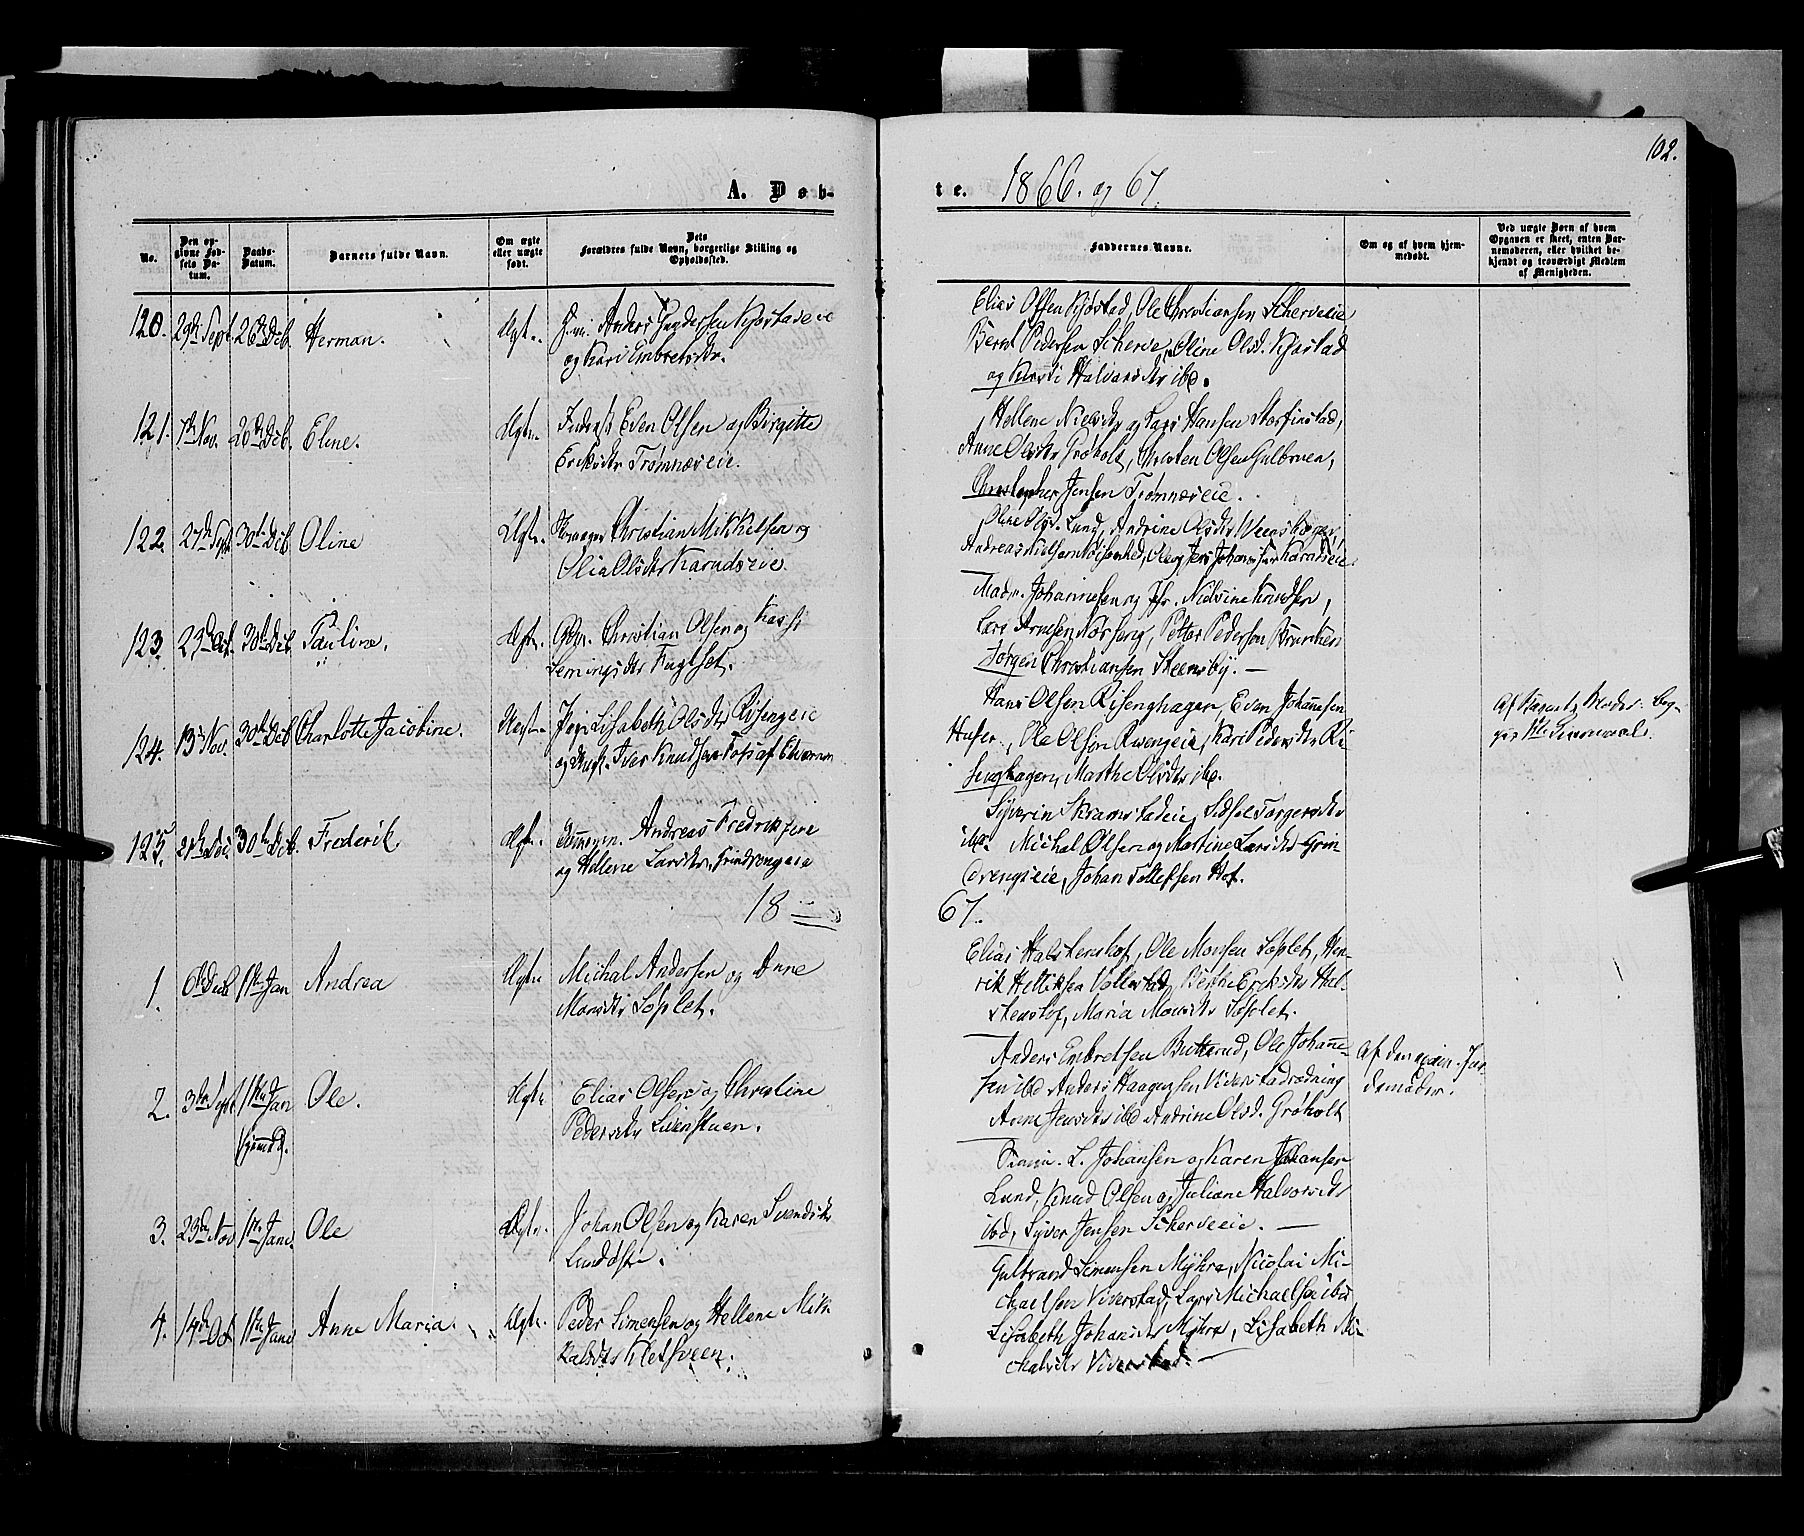 102.
A. Døb-
te. 1866. og 67.
No.
Den op-
givne Fød-
sels Da-
tum.
Daabs-
Datum.
Barnets fulde Navn.
Om ægte
eller uægte
født.
Dets
Forældres fulde Navn, borgerlige Stilling og
Opholdssted.
Faddernes Navne.
Om og af hvem hjem-
medøbt.
Ved uægte Børn af hvem
Opgaven er skeet, enten Bar-
nemoderen, eller hvilket be-
kjendt og troværdigt Medlem
af Menigheden.
120. 29de Sept 26de Deb. Herman. Ægte. Anders Gundersen Kjøstadeie
og Kari Embretsdtr.
Elias Olsen Kjøstad, Ole Christiansen Scherveeie
Bernt Pedersen Scherve, Oline Olsd. Kjøstad
og Kersti Halvorsdtr ibd.
121. 7de Nov. 26de Deb. Eline. Ægte Inderst Even Olsen og Birgitte
Eriksdtr Trømnæseie.
Hellene Nielsdtr og Lars Hansen Stortinstad,
Anne Olsdtr Grøholt, Christen Olsen Gulbruen,
Christopher Jensen Trømnæseie.
122. 27de Sept 30te Deb. Oline Ægte. Christian Mikkelsen og
Olia Olsdtr Karudseie.
Oline Olsd. Lund, Andrine Olsdtr
Andreas Nielsen Karudseie.
123. 23de Oct. 30te Deb. Pauline. Ægte. Christian Olsen og Kersti
Lemingsdtr Fuglset.
Mad. Johannesen og Jfr. Nielsine Knudsen,
Lars Arnesen Norseng, Petter Pedersen
Jørgen Christiansen Steensby. —
124. 13de Nov. 30te Deb. Charlotte Jacobine. Uægte Pige Lisabeth Olsdtr Risengeie
og Ungk. Iver Knudsen Fos af Elverum
Hans Olsen Risenghagen, Even Johannesen
Ole Olsen Risengeie, Kari Pedersdtr Ri-
senghagen, Marthe Olsdtr ibd.
Af Barnets Moder. Beg-
ges 1ste Leiermaal.
125. 21de Deb. 30te Deb. Frederik Ægte. Andreas Fredriksen
og Hellene Larsdtr. Grindrengeie
Syverin Skramstadeie, Sidsel Torgersdtr
ibd. Michal Olsen og Martine Larsdtr Grin-
drengseie, Johan Tollefsen Hof.
18
67.
1. 6te Deb 1ste Jan Andrea Ægte Michal Andersen og Anne
Monsdtr Søslet.
Elias Halstenshof, Ole Monsen Søslet, Hen-
rik Helliksen Vollestad, Berthe Eriksdtr Hal-
stenshof, Maria Monsdtr Søslet.
2. 3de Sept 1ste Jan Ole. Ægte Elias Olsen og Christine
(hjemd.). Pedersdtr Livenstuen.
Anders Embretsen Butterud, Ole Johanne-
sen ibd Anders Haagensen Viverstadrødning
Anne Jensdtr ibd Andrine Olsd. Grøholt
Af den exam. Jor-
demoder.
3. 23de Nov 1ste Janr. Ole Ægte. Johan Olsen og Karen Svendsdtr
Lund østre.
L. Johansen og Karen Johansen
Lund, Knud Olsen og Juliane Halvorsdtr
ibd, Syver Jensen Scherveeie. —
4. 14de Oct 1ste Janr Anne Maria. Ægte. Peder Simensen og Hellene Mik-
kalsdtr Kletsveen.
Gulbrand Simensen Myhre, Nicolai Mi-
chaelsen Viverstad, Lars Michaelsen ibd
Lisabeth Johansdtr Myhre, Lisabeth Mi-
chalsdtr Viverstad. —